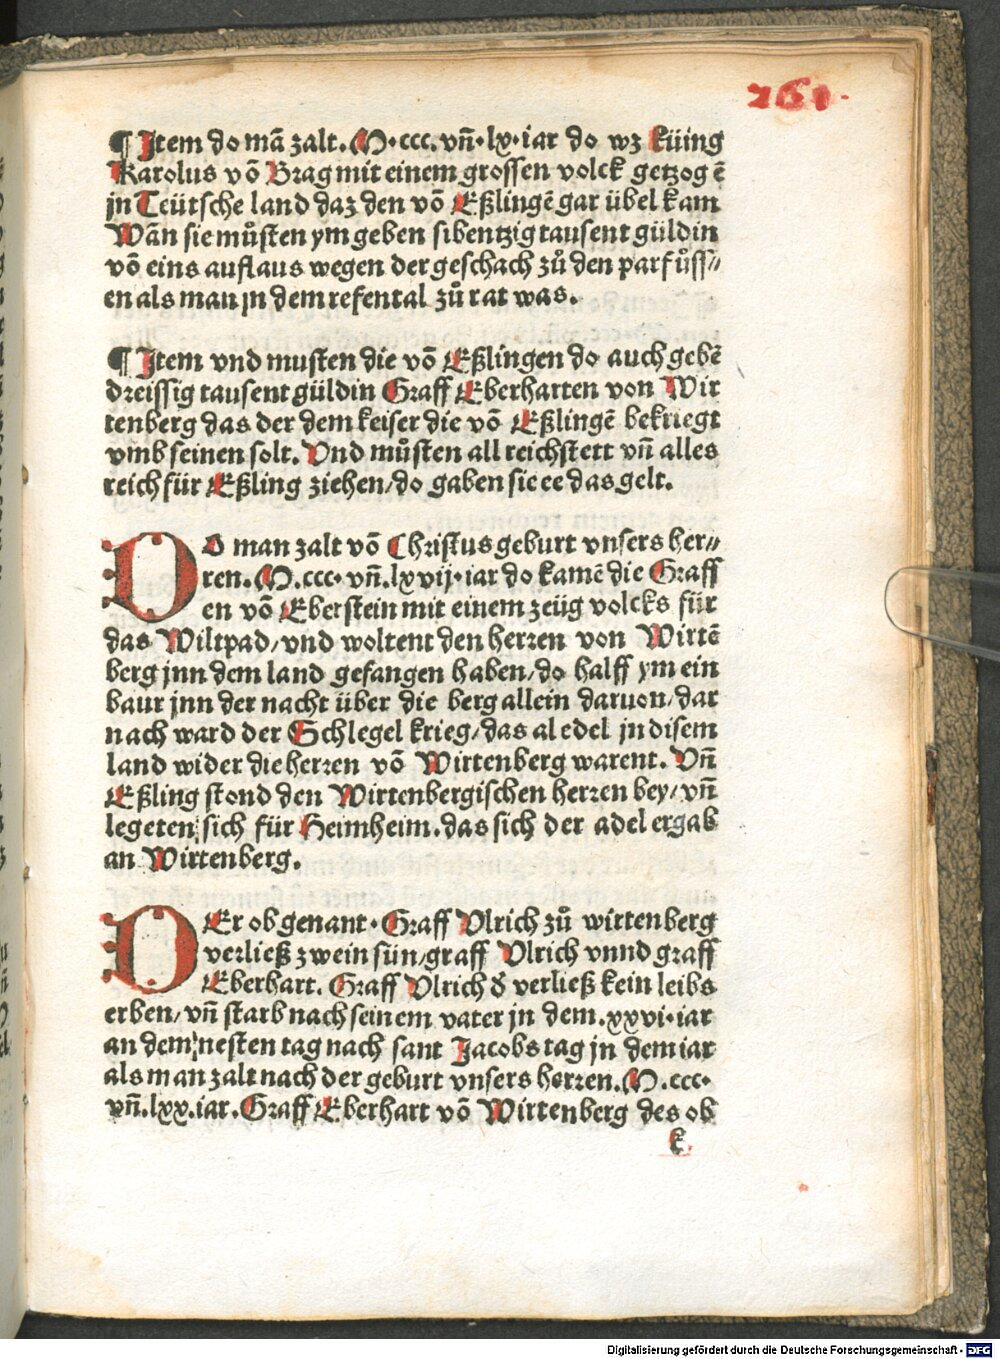 261.
¶ Item do mā zalt. M.ccc. vn̄.lx.iar do wz küing
Karolus vō Brag mit einem grossen volck getzogē
jn Teütsche land daz den vō Eßlingē gar übel kam
Wān sie můsten ym geben sibentzig tausent güldin
vō eins auflaus wegen der geschach zů den parfůss//
en als man jn dem refental zů rat was.
¶ Item vnd musten die vō Eßlingen do auch gebē
dreissig tausent güldin Graff Eberharten von Wir
tenberg das der dem keiser die vō Eßlingē bekriegt
vmb seinen solt. Vnd můsten all reichstett vn̄ alles
reich für Eßling ziehen/do gaben sie ee das gelt.
DO man zalt vō Christus geburt vnsers her//
ren. M.ccc. vn̄.lxvij.iar do kamē die Graff
en vō Eberstein mit einem zeüg volcks für
das Wiltpad/vnd woltent den herren von Wirtē
berg jnn dem land gefangen haben/do halff ym ein
baur jnn der nacht über die berg allein daruon/dar
nach ward der Schlegel krieg/das al edel jn disem
land wider die herren vō Wirtenberg warent. Vn̄
Eßling stond den Wirtenbergischen herren bey/vn̄
legeten sich für Heimheim.das sich der adel ergab
an Wirtenberg.
DEr ob genant. Graff Vlrich zů wirtenberg
verließ zwein sün/graff Vlrich vnnd graff
Eberhart. Graff Vlrich đ verließ kein leibs
erben/vn̄ starb nach seinem vater jn dem.xxvi.iar
an dem nesten tag nach sant Jacobs tag jn dem iar
als man zalt nach der geburt vnsers herren. M.ccc.
vn̄.lxx.iar. Graff Eberhart vō Wirtenberg des ob
k
Digitalisierung gefördert durch die Deutsche Forschungsgemeinschaft - DFG